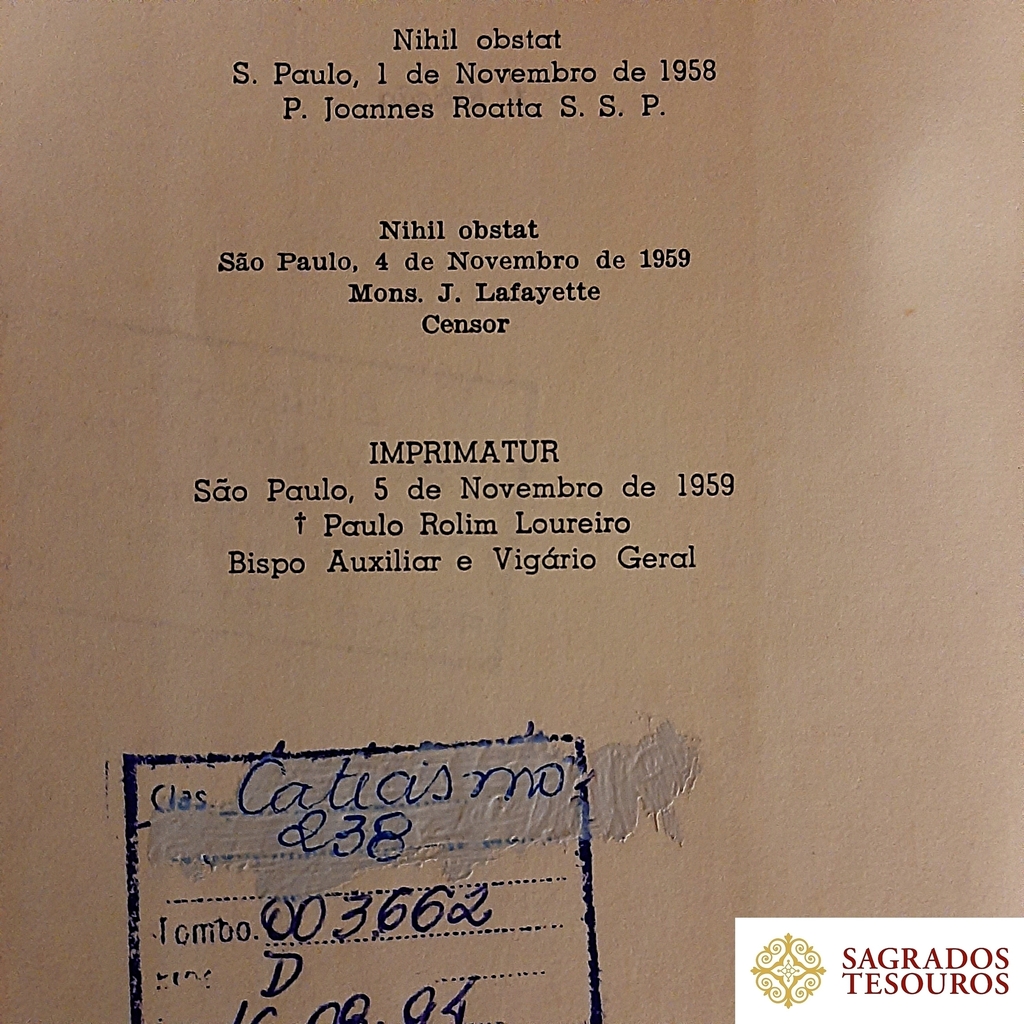 Nihil obstat
S. Paulo, 1 de Novembro de 1958
P. Joannes Roatta S. S. P.
Nihil obstat
São Paulo, 4 de Novembro de 1959
Mons. J. Lafayette
Censor
IMPRIMATUR
São Paulo, 5 de Novembro de 1959
† Paulo Rolim Loureiro
Bispo Auxiliar e Vigário Geral
Clas. Catecismo
238
Tombo. 003.662
D
SAGRADOS
TESOUROS